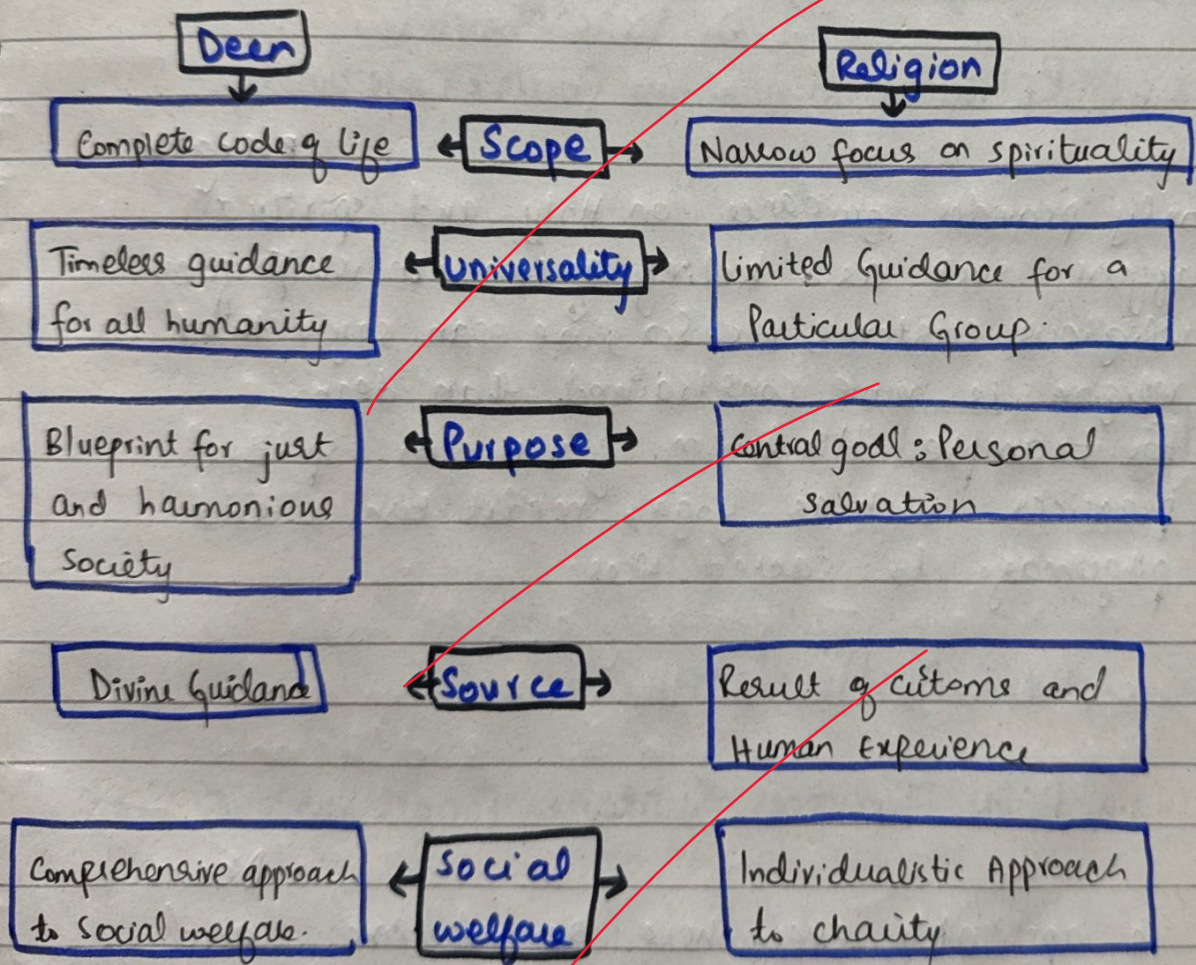 Deen
Religion
Complete code of life
Scope
Narrow focus on spirituality
Timeless guidance
for all humanity
Universality
Limited Guidance for a
Particular Group.
Blueprint for just
and harmonious
Society
Purpose
Central goal : Personal
salvation
Divine Guidance
Source
Result of customs and
Human Experience
Comprehensive approach
to social welfare.
Social
welfare
Individualistic Approach
to charity